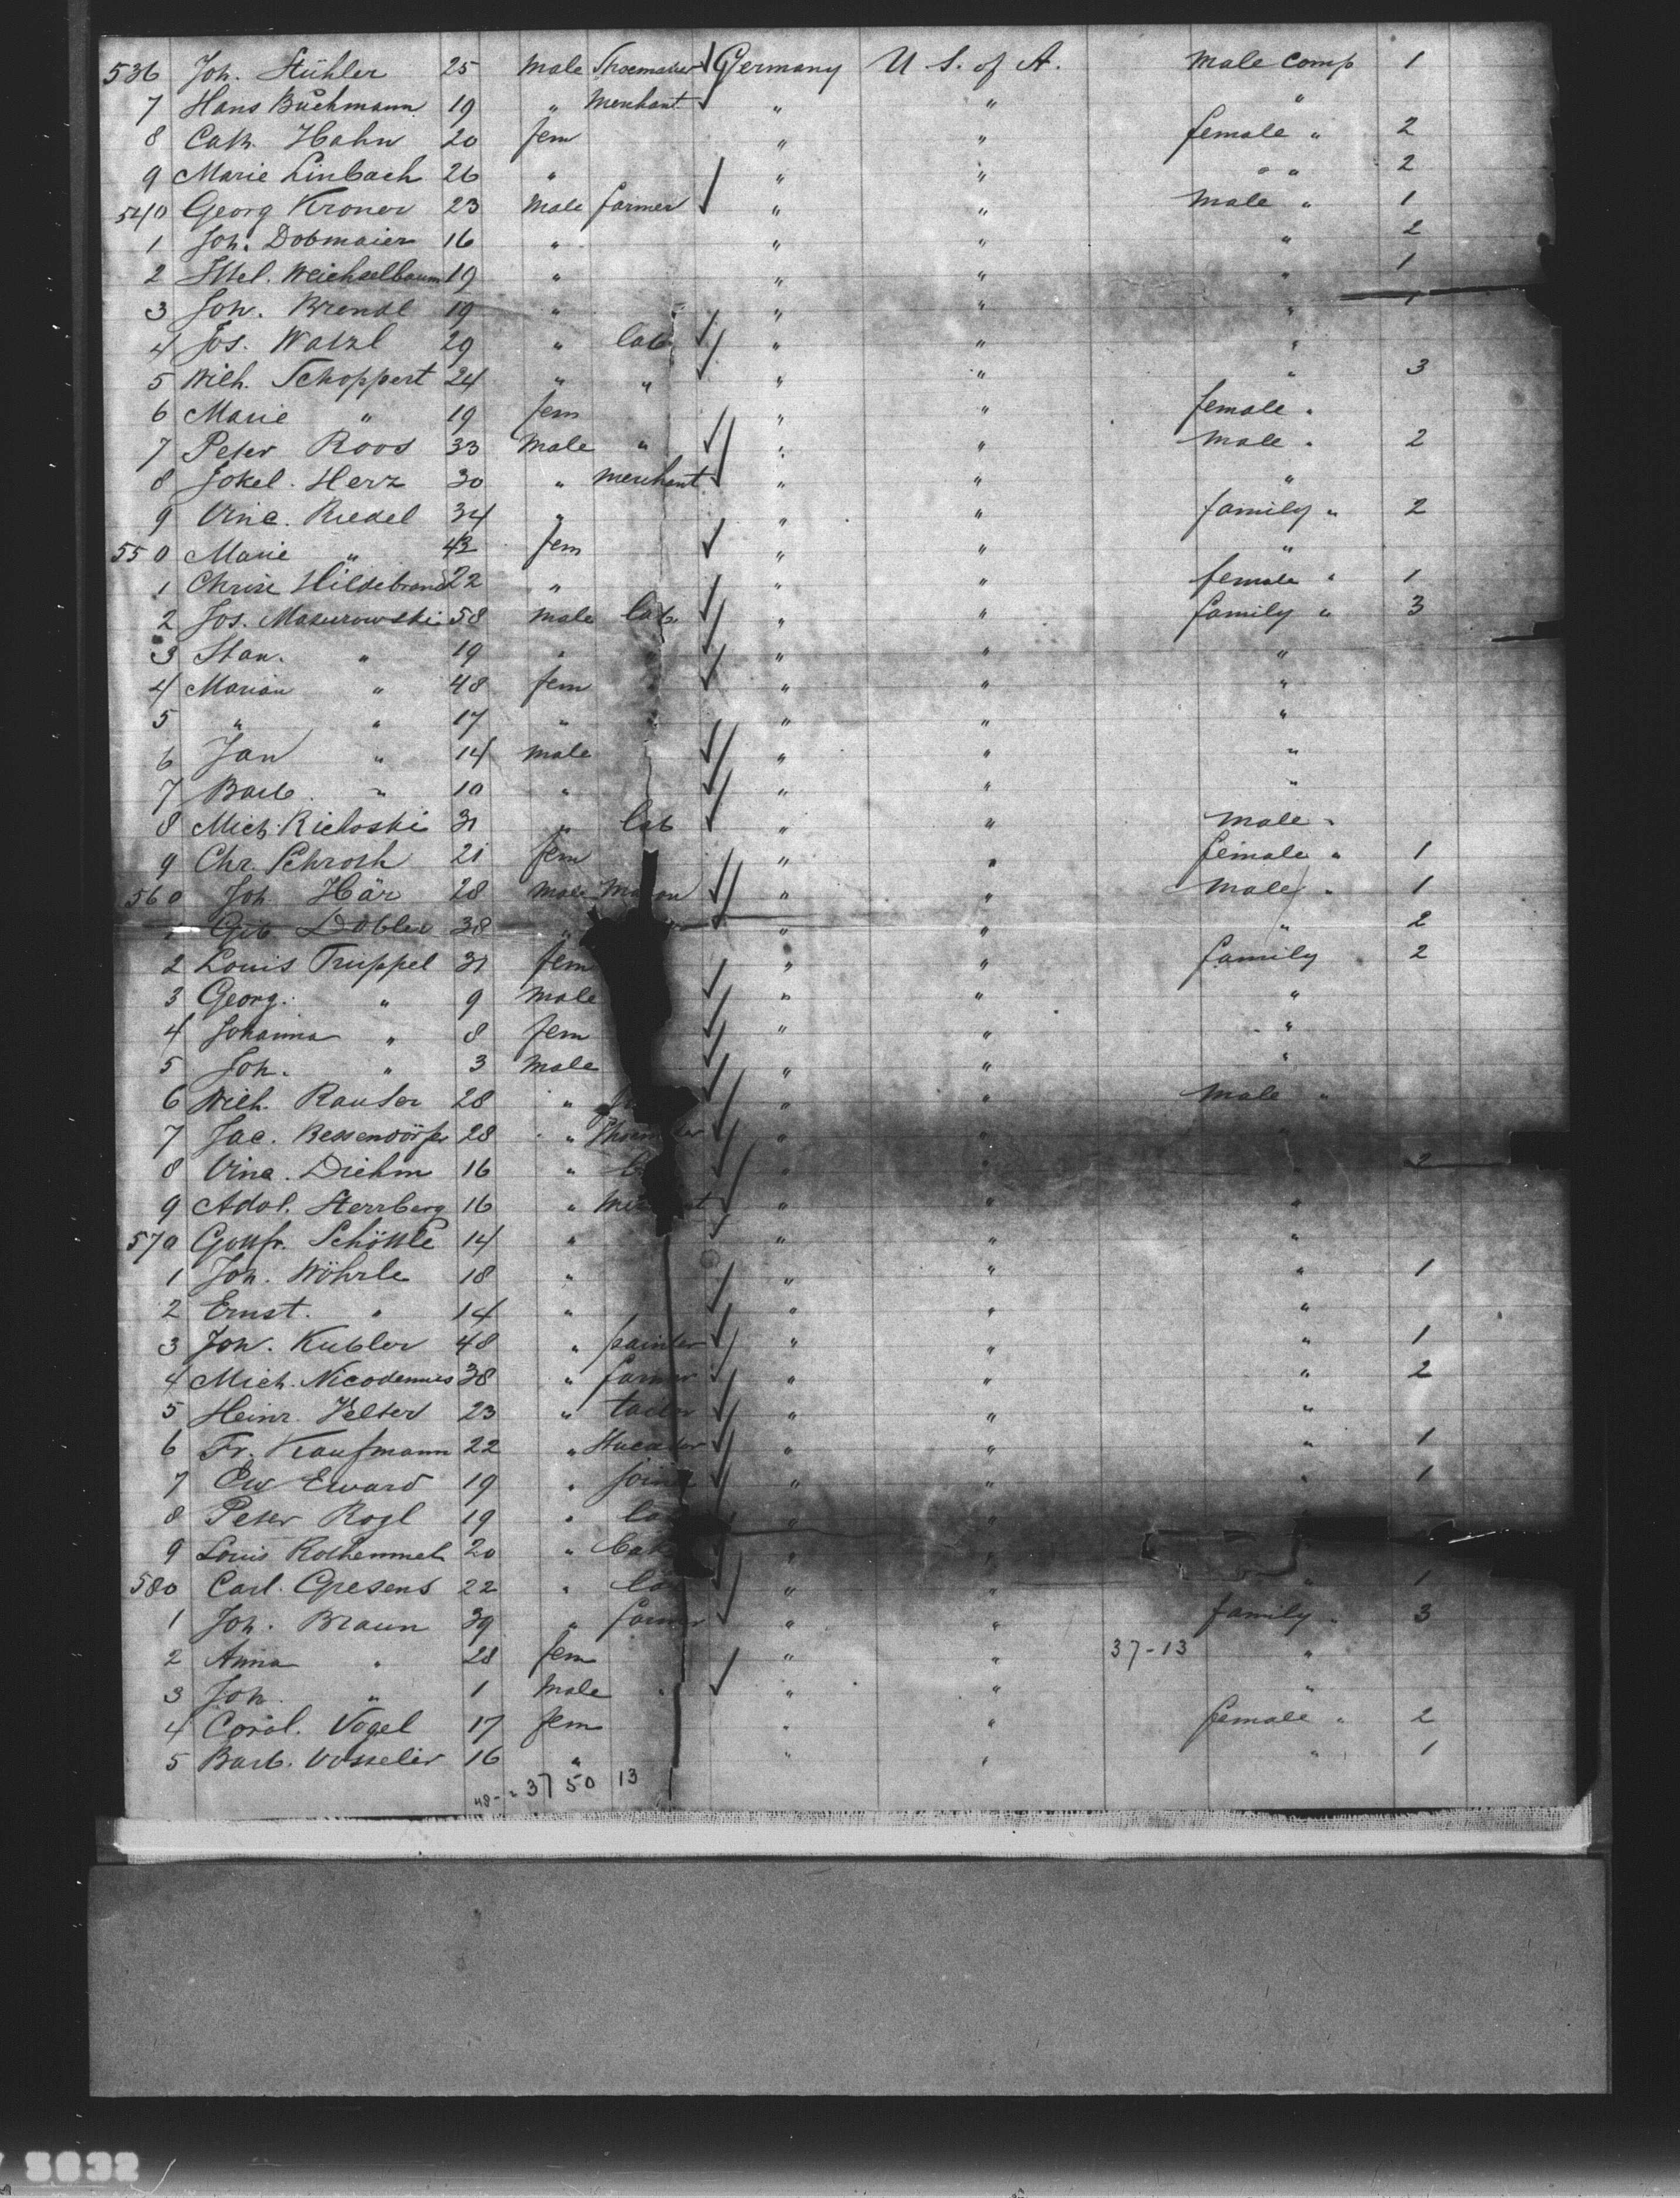 536 Joh. Stühler 25 male Shoemaker Germany U. S. of A. male comp 1
7 Hans Buchmann 19 " merchant " " "
8 Cath. Hahn 20 fem " " female " 2
9 Marie Linbach 26 " " " " " 2
540 Georg Kroner 23 male farmer " " male " 1
1 Joh. Dobmaier 16 " " " " 2
2 Mel. Weichselbaum 19 " " " " 1
3 Joh. Brendl 19 " " " " 1
4 Jos. Watzl 29 " lab " " "
5 Wilh. Schoppert 24 " " " " " 3
6 Marie " 19 fem " " female "
7 Peter Roos 33 male " " " male " 2
8 Jokel. Herz 30 " merchant " " "
9 Vinc. Riedel 34 " " " family " 2
550 Marie " 42 fem " " "
1 Chrise Hildebrand 22 " " " female " 1
2 Jos. Mazurowski 58 male lab " " family " 3
3 Stan. " 19 " " " "
4 Marian " 48 fem " " "
5 " " 17 " " " "
6 Jan " 14 male " " "
7 Barb. " 10 " " " "
8 Mich. Richoski 31 " lab " " male "
9 Chr. Schroth 21 fem " " female " 1
560 Joh. Här 28 male Mason " " male " 1
1 Dobler 38 " " " " 2
2 Louis Truppel 31 fem " " family " 2
3 Georg. " 9 male " " "
4 Johanna " 8 fem " " "
5 Joh. " 3 male " " "
6 Wilh. Rauser 28 " " " male "
7 Jac. Bessendörfer 28 " Shoemaker " " "
8 Vinc. Diehm 16 " " " " 2
9 Adol. Sterrberg 16 " merchant " " "
570 Gottfr. Schöttle 14 " " " "
1 Joh. Wöhrle 18 " " " " 1
2 Ernst. " 14 " " " "
3 Joh. Kubler 48 " painter " " " 1
4 Mich. Nicodemus 38 " farmer " " " 2
5 Heinr. Velter 23 " tailor " " "
6 Fr. Kaufmann 22 " Stucator " " " 1
7 Ew Eward 19 " joiner " " " 1
8 Peter Rogl 19 " " "
9 Louis Rothemmel 20 " " "
580 Carl. Gresens 22 " " " " 1
1 Joh. Braun 39 " farmer " " family " 3
2 Anna " 28 fem " " 37-13 "
3 Joh. " 1 male " " "
4 Corol. Vogel 17 fem " " female " 2
5 Barb. Vosseler 16 " " " " 1
37 50 13
5632